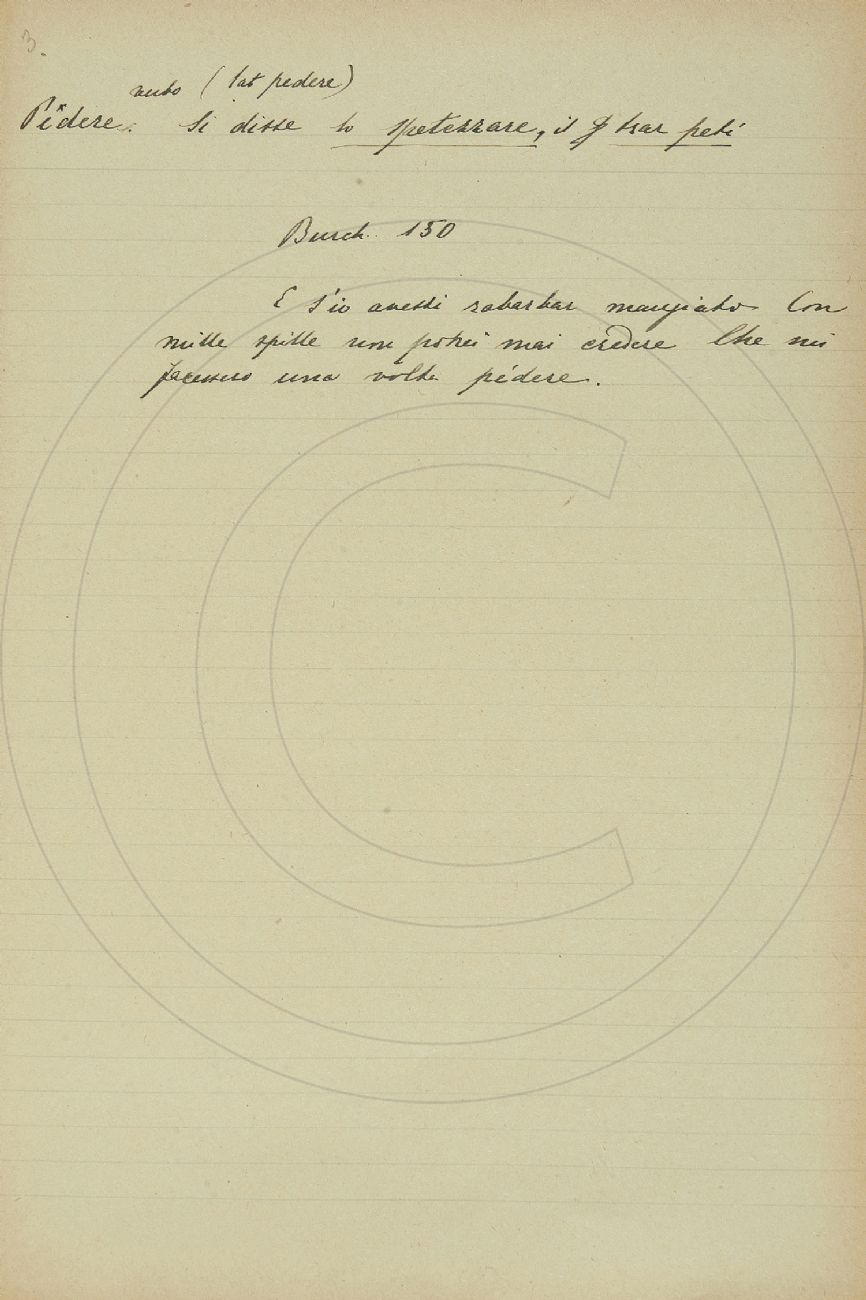 3.
verbo (lat pedere)
Pèdere. Si disse lo spetezzare, il trar peti
Burch. 150
E s'io avessi rabarbar mangiato Con
mille spille non potrei mai credere Che mi
facessero una volta pédere.